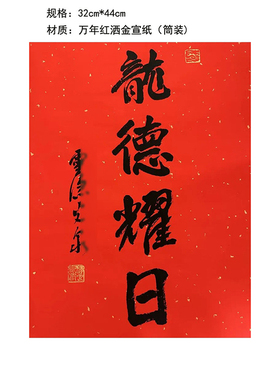 规格：32cm*44cm
材质：万年红洒金宣纸（简装）
龍德耀日